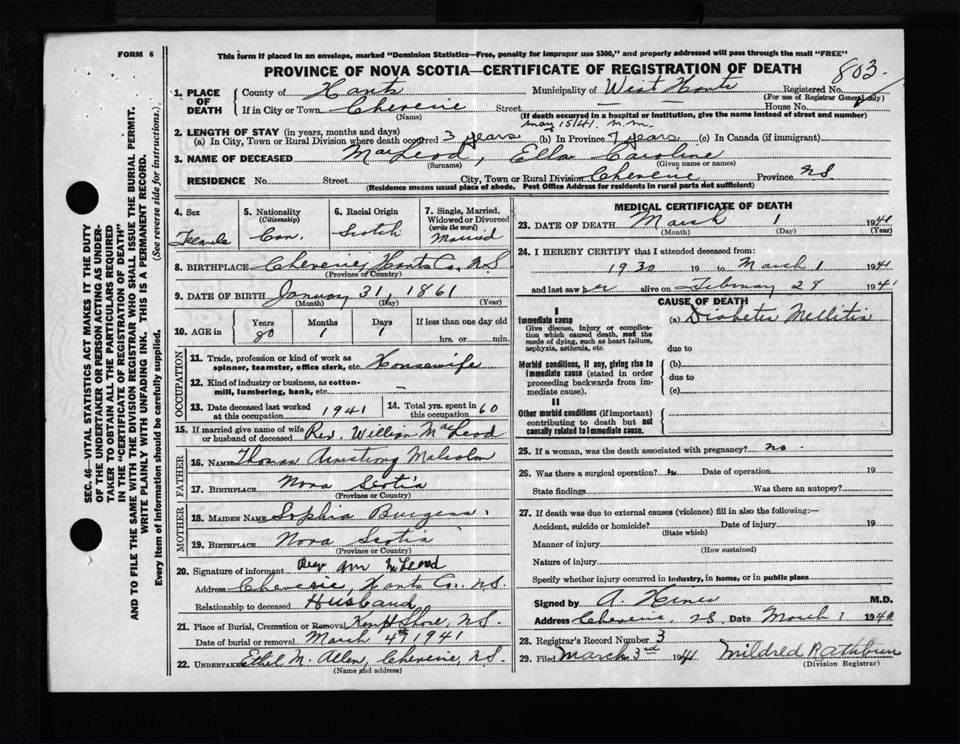 FORM 6
This form if placed in an envelope, marked "Dominion Statistics—Free, penalty for improper use $300," and properly addressed will pass through the mail "FREE"
PROVINCE OF NOVA SCOTIA—CERTIFICATE OF REGISTRATION OF DEATH
803
1. PLACE OF DEATH
County of Hants Municipality of West Hants Registered No.
(For use of Registrar General only)
If in City or Town Cheverie Street — House No.
(Name) (If death occurred in a hospital or institution, give the name instead of street and number)
May 15/41. M.M.
2. LENGTH OF STAY (in years, months and days)
(a) In City, Town or Rural Division where death occurred 3 years (b) In Province 7 years (c) In Canada (if immigrant)
3. NAME OF DECEASED MacLeod, Ella Caroline
(Surname) (Given name or names)
RESIDENCE No. Street City, Town or Rural Division Cheverie Province NS
(Residence means usual place of abode. Post Office Address for residents in rural parts not sufficient)
4. Sex Female
5. Nationality (Citizenship) Can.
6. Racial Origin Scotch
7. Single, Married, Widowed or Divorced (write the word) Married
8. BIRTHPLACE Cheverie, Hants Co., N.S.
(Province or Country)
9. DATE OF BIRTH January 31, 1861
(Month) (Day) (Year)
10. AGE in Years 80 Months 1 Days If less than one day old hrs. or min.
OCCUPATION
11. Trade, profession or kind of work as spinner, teamster, office clerk, etc. Housewife
12. Kind of industry or business, as cotton-mill, lumbering, bank, etc. —
13. Date deceased last worked at this occupation 1941
14. Total yrs. spent in this occupation 60
15. If married give name of wife or husband of deceased Rev. William MacLeod
FATHER
16. NAME Thomas Armstrong Malcolm
17. BIRTHPLACE Nova Scotia
(Province or Country)
MOTHER
18. MAIDEN NAME Sophia Burgess
19. BIRTHPLACE Nova Scotia
(Province or Country)
20. Signature of informant Rev Wm McLeod
Address Cheverie, Hants Co., N.S.
Relationship to deceased Husband
21. Place of Burial, Cremation or Removal Shore, N.S.
Date of burial or removal March 4th 1941
22. Undertaker Ethel M. Allen, Cheverie, N.S.
(Name and address)
MEDICAL CERTIFICATE OF DEATH
23. DATE OF DEATH March 1 1941
(Month) (Day) (Year)
24. I HEREBY CERTIFY that I attended deceased from:
1930 19 to March 1 1941
and last saw her alive on February 28 1941
CAUSE OF DEATH
I
Immediate cause
Give disease, injury or complication which caused death, not the mode of dying, such as heart failure, asphyxia, asthenia, etc.
(a) Diabetes Mellitis
due to
Morbid conditions, if any, giving rise to immediate cause (stated in order proceeding backwards from immediate cause).
(b)
due to
(c)
II
Other morbid conditions (if important) contributing to death but not causally related to immediate cause.
25. If a woman, was the death associated with pregnancy? no
26. Was there a surgical operation? Date of operation 19
State findings Was there an autopsy?
27. If death was due to external causes (violence) fill in also the following:—
Accident, suicide or homicide? Date of injury 19
(State which)
Manner of injury
(How sustained)
Nature of injury
Specify whether injury occurred in industry, in home, or in public place
Signed by M.D.
Address Cheverie, N.S. Date March 1 1940
28. Registrar's Record Number 3
29. Filed March 3rd 1941 Mildred Rathbun
(Division Registrar)
SEC. 46—VITAL STATISTICS ACT MAKES IT THE DUTY
OF THE UNDERTAKER OR PERSON ACTING AS UNDER-
TAKER TO OBTAIN ALL THE PARTICULARS REQUIRED
IN THE "CERTIFICATE OF REGISTRATION OF DEATH"
AND TO FILE THE SAME WITH THE DIVISION REGISTRAR WHO SHALL ISSUE THE BURIAL PERMIT.
WRITE PLAINLY WITH UNFADING INK. THIS IS A PERMANENT RECORD.
Every item of information should be carefully supplied. (See reverse side for instructions.)